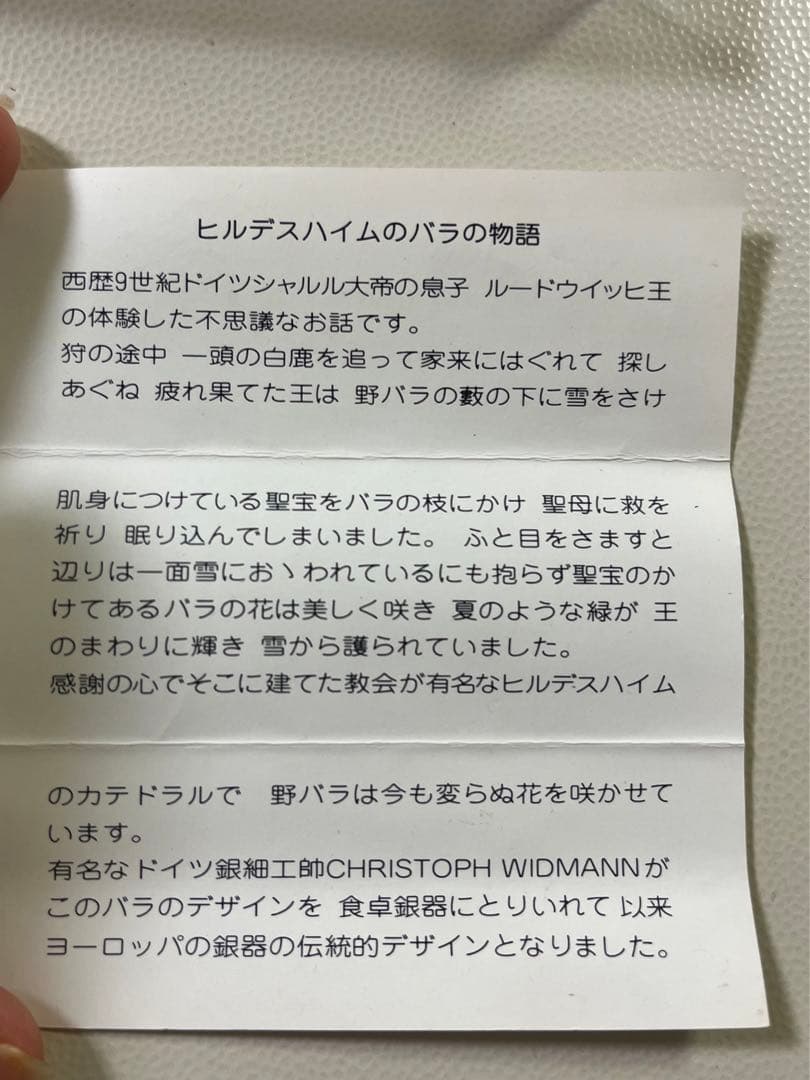 ヒルデスハイムのバラの物語
西歴9世紀ドイツシャルル大帝の息子 ルードウイッヒ王
の体験した不思議なお話です。
狩の途中 一頭の白鹿を追って家来にはぐれて 探し
あぐね 疲れ果てた王は 野バラの藪の下に雪をさけ
肌身につけている聖宝をバラの枝にかけ 聖母に救を
祈り 眠り込んでしまいました。 ふと目をさますと
辺りは一面雪におゝわれているにも抱らず聖宝のか
けてあるバラの花は美しく咲き 夏のような緑が 王
のまわりに輝き 雪から護られていました。
感謝の心でそこに建てた教会が有名なヒルデスハイム
のカテドラルで 野バラは今も変らぬ花を咲かせて
います。
有名なドイツ銀細工師CHRISTOPH WIDMANNが
このバラのデザインを 食卓銀器にとりいれて 以来
ヨーロッパの銀器の伝統的デザインとなりました。